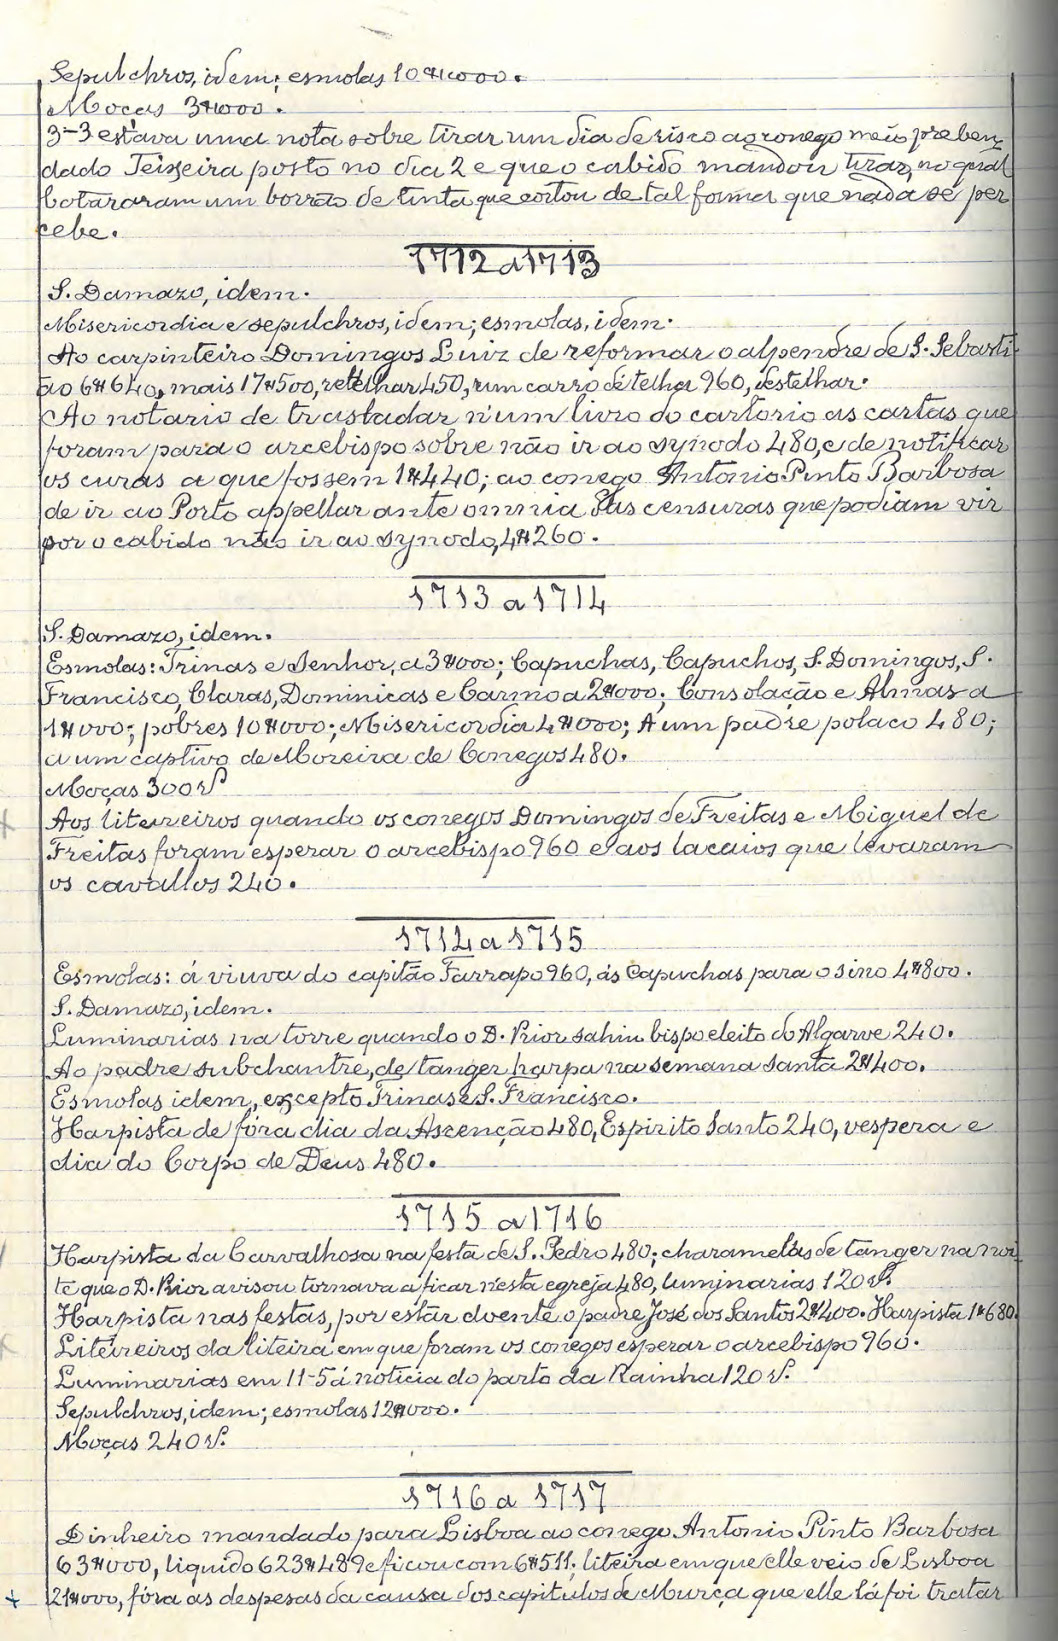 Sepulchros, idem; esmolas 10$000.
Moças 3$000.
3-3 estava uma nota sobre tirar um dia de risco ao conego meio preben
dado Teixeira posto no dia 2 e que o cabido mandou tirar, no qual
botararam um borrão de tinta que cortou de tal forma que nada se per
cebe.
1712 a 1713
S. Damazo, idem.
Misericordia e sepulchros, idem; esmolas, idem.
Ao carpinteiro Domingos Luiz de reformar o alpendre de S. Sebasti
ão 6$640, mais 17$500, retelhar 450, um carro de telha 960, destelhar.
Ao notario de trastadar n'um livro do cartorio as cartas que
foram para o arcebispo sobre não ir ao synodo 480, e de notificar
os curas a que fossem 1$440; ao conego Antonio Pinto Barbosa
de ir ao Porto appellar ante omnia das censuras que podiam vir
por o cabido não ir ao synodo, 4$260.
1713 a 1714
S. Damazo, idem.
Esmolas: Trinas e Senhor, a 3$000; Capuchas, Capuchos, S. Domingos, S.
Francisco, Claras, Dominicas e Carmo a 2$000; Consolação e Almas a
1$000; pobres 10$000; Misericordia 4$000; A um padre polaco 480;
a um captivo de Moreira de Conegos 480.
Moças 300 rs.
Aos liteireiros quando os conegos Domingos de Freitas e Miguel de
Freitas foram esperar o arcebispo 960 e aos lacaios que levaram
os cavallos 240.
1714 a 1715
Esmolas: á viuva do capitão Farrapo 960, ás Capuchas para o sino 4$800.
S. Damazo, idem.
Luminarias na torre quando o D. Prior sahiu bispo eleito do Algarve 240.
Ao padre subchantre, de tanger harpa na semana santa 2$400.
Esmolas idem, excepto Trinas e S. Francisco.
Harpista de fóra dia da Ascenção 480, Espirito Santo 240, vespera e
dia do Corpo de Deus 480.
1715 a 1716
Harpista da Carvalhosa na festa de S. Pedro 480; charamelas de tanger na noi
te que o D. Prior avisou tornava a ficar n'esta egreja 480, luminarias 120 rs.
Harpista nas festas, por estar doente o padre José dos Santos 2$400. Harpista 1$680.
Liteireiros da liteira em que foram os conegos esperar o arcebispo 960.
Luminarias em 11-5 á noticia do parto da Rainha 120 rs.
Sepulchros, idem; esmolas 12$000.
Moças 240 rs.
1716 a 1717
Dinheiro mandado para Lisboa ao conego Antonio Pinto Barbosa
63$000, liquido 623$489 e ficou com 6$511; liteira em que elle veio de Lisboa
21$000, fóra as despesas da causa dos capitulos de Murça que elle lá foi tratar